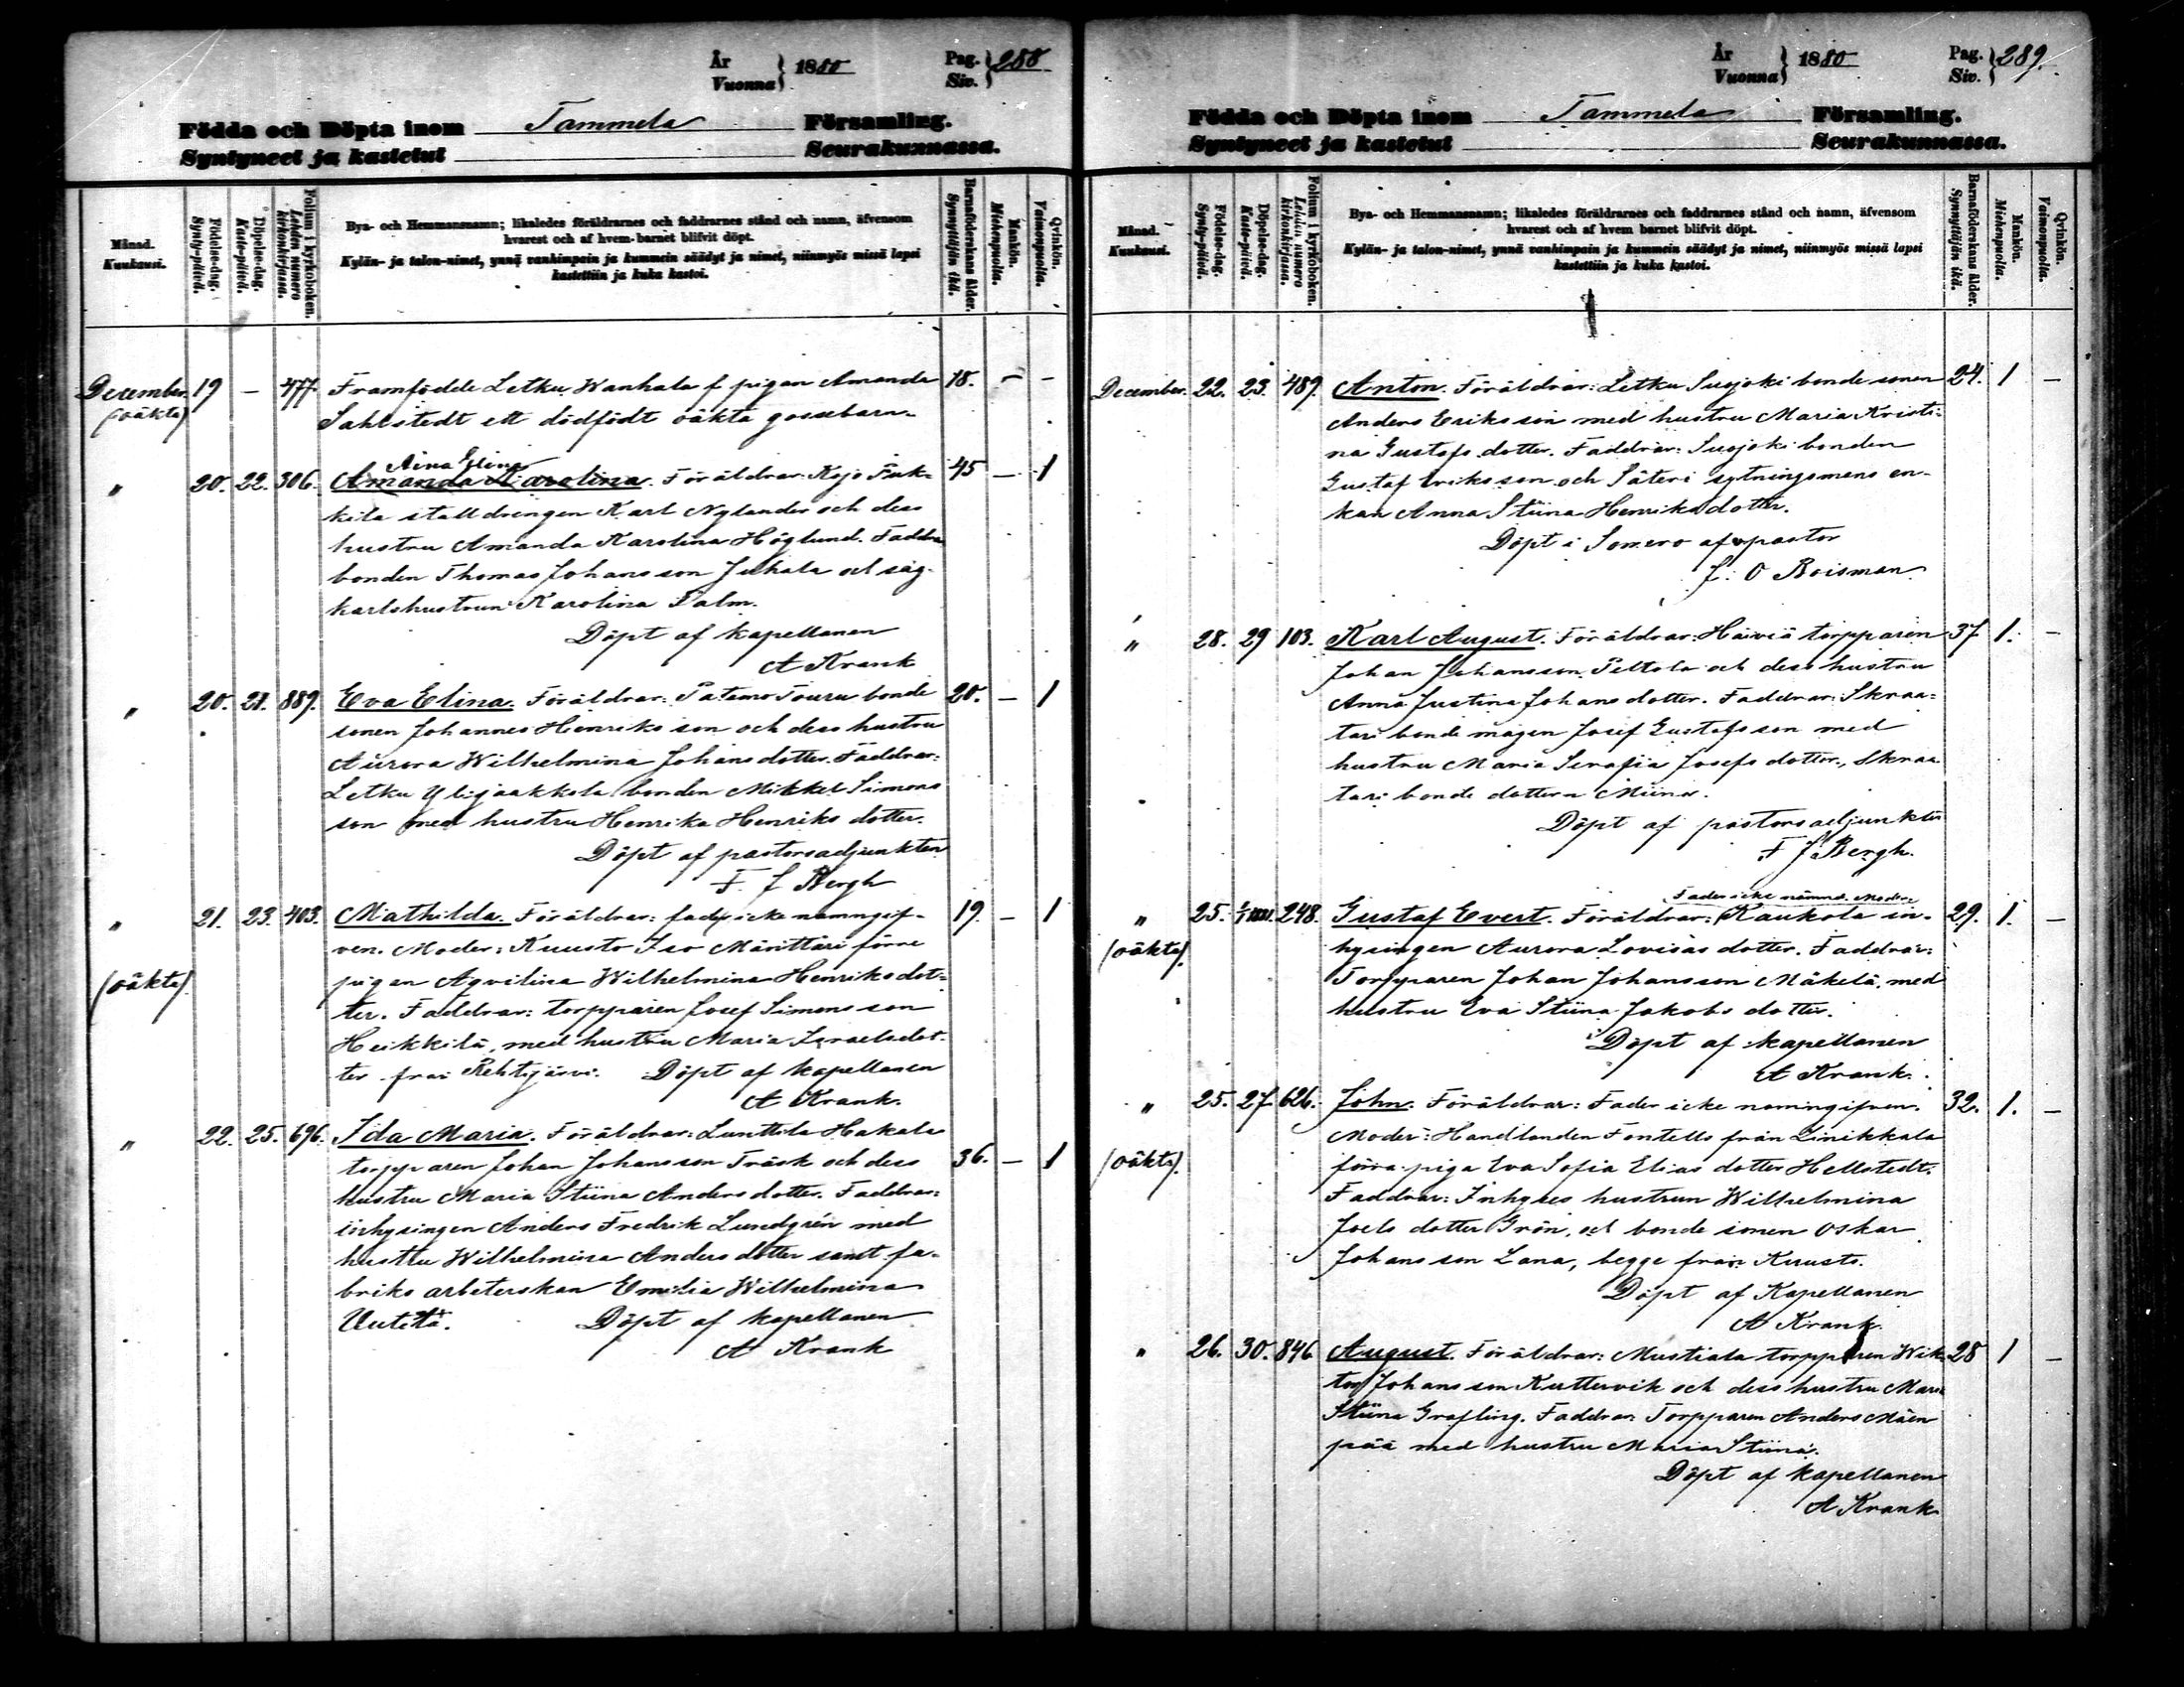 År
Vuonna } 1880
Pag.
Siv. } 288
Födda och Döpta inom Tammela Församling.
Syntyneet ja kastetut Seurakunnassa.
Månad.
Kuukausi.
Födelse-dag.
Synty-päivä.
Döpelse-dag.
Kaste-päivä.
Folium i kyrkoboken.
Lehden numero
kirkonkirjassa.
Bya- och Hemmansnamn; likaledes föräldrarnes och faddrarnes stånd och namn, äfvensom
hvarest och af hvem barnet blifvit döpt.
Kylän- ja talon-nimet, ynnä vanhimpain ja kummein säädyt ja nimet, niinmyös missä lapsi
kastettiin ja kuka kastoi.
Barnaföderskans ålder.
Synnyttäjän ikä.
Mankön.
Miehenpuolta.
Qvinkön.
Vaimonpuolta.
December. 19 — 477. Framfödde Letku Wanhala f pigan Amanda 18. — —
(oäkta) Sahlstedt ett dödfödt oäkta gossebarn.
Aina Elina
" 20. 22. 306. Amanda Karolina. Föräldrar: Kojo Puk- 45 — 1
kila stalldrengen Karl Nylander och dess
hustru Amanda Karolina Höglund. Faddra
bonden Thomas Johansson Juhala och såg-
karlshustrun Karolina Palm.
Döpt af kapellanen
A Krank
" 20. 21. 889. Eva Elina. Föräldrar: Patemo Touru bonde 20. — 1
sonen Johannes Henriksson och dess hustru
Aurora Wilhelmina Johansdotter. Faddrar:
Letku Ylijaakkola bonden Mikkel Simons
son med hustru Henrika Henriksdotter.
Döpt af pastorsadjunkten
F. J Bergh
" 21. 23. 403. Mathilda. Föräldrar: fader icke namngif- 19. — 1
ven. Moder: Kuusto Iso Mänittäri förre
(oäkta) pigan Aqvilina Wilhelmina Henriksdot-
ter. Faddrar: torpparen Josef Simonsson
Heikkilä, med hustru Maria Israelsdot-
ter från Rehtijärvi. Döpt af kapellanen
A Krank.
" 22. 25. 696. Ida Maria. Föräldrar: Lunttila Hakala
torpparen Johan Johansson Träsk och dess 36. — 1
hustru Maria Stiina Andersdotter. Faddrar:
inhysingen Anders Fredrik Lundgrén med
hustru Wilhelmina Andersdotter samt fa-
briks arbeterskan Emilia Wilhelmina
Uutela. Döpt af kapellanen
A Krank
År
Vuonna } 1880
Pag.
Siv. } 289.
Födda och Döpta inom Tammela Församling.
Syntyneet ja kastetut Seurakunnassa.
Månad.
Kuukausi.
Födelse-dag.
Synty-päivä.
Döpelse-dag.
Kaste-päivä.
Folium i kyrkoboken.
Lehden numero
kirkonkirjassa.
Bya- och Hemmansnamn; likaledes föräldrarnes och faddrarnes stånd och namn, äfvensom
hvarest och af hvem barnet blifvit döpt.
Kylän- ja talon-nimet, ynnä vanhimpain ja kummein säädyt ja nimet, niinmyös missä lapsi
kastettiin ja kuka kastoi.
Barnaföderskans ålder.
Synnyttäjän ikä.
Mankön.
Miehenpuolta.
Qvinkön.
Vaimonpuolta.
December. 22. 23. 489. Anton. Föräldrar: Letku Suojoki bonde sonen 24. 1 —
Anders Eriksson med hustru Maria Kristi-
na Gustafsdotter. Faddrar: Suojoki bonden
Gustaf Eriksson och Säteri sytningsmans en-
kan Anna Stiina Henriksdotter.
Döpt i Somero af pastor
J: O Boisman.
" 28. 29 103. Karl August. Föräldrar: Häiviä torpparen 37 1. —
Johan Johansson Peltola och dess hustru
Anna Justina Johansdotter. Faddrar: Skraa-
tari bonde mågen Josef Gustafsson med
hustru Maria Serafia Josefsdotter, Skraa
tari bonde dottern Miina.
Döpt af pastorsadjunkten
F J Bergh.
Fader icke nämnd. Moder
" 25. 248. Gustaf Evert. Föräldrar: Kaukola in- 29. 1. —
(oäkta). hysingen Aurora Lovisasdotter. Faddrar:
Torpparen Johan Johansson Mäkelä, med
hustru Eva Stiina Jakobsdotter.
Döpt af kapellanen
A Krank.
" 25. 27 626. John. Föräldrar: Fader icke namngifven. 32. 1. —
Moder: Handlanden Fontells från Linikkala
(oäkta). förra piga Eva Sofia Eliasdotter Hellstedt.
Faddrar: Inhyses hustrun Wilhelmina
Joelsdotter Grön, och bonde sonen Oskar
Johansson Lana, begge från Kuusto.
Döpt af Kapellanen
A Krank.
" 26. 30. 846 August. Föräldrar: Mustiala torpparen Wik- 28 1 —
tor Johansson Kuttervik och dess hustru Maria
Stiina Grafling. Faddrar Torpparen Anders Mäen
pää med hustru Maria Stiina.
Döpt af kapellanen
A Krank